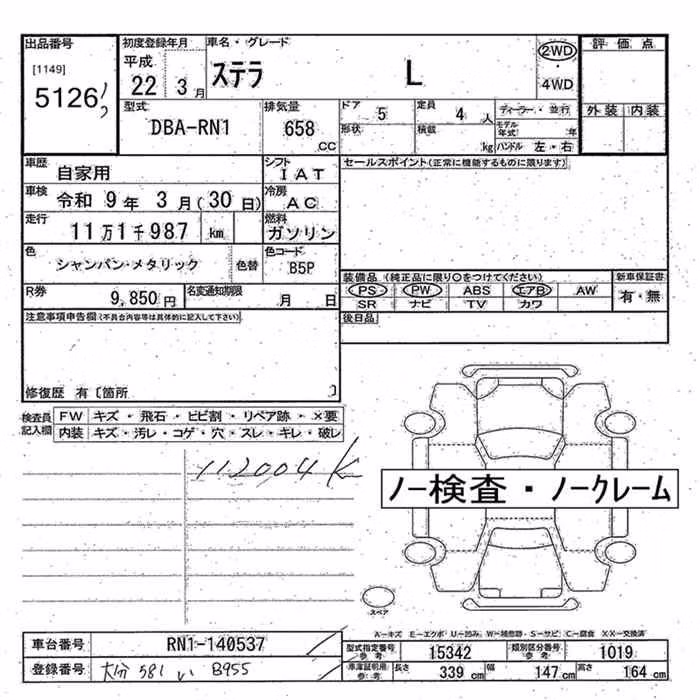 出品番号 初度登録年月 車名・グレード 評価点
[1149] 平成 22 3月 ステラ L 2WD ・ 4WD
5126 外装 内装
型式 DBA-RN1 排気量 658 CC
ドア 5 定員 4 人 ディーラー・並行
形状 積載 kg モデル年式 年
ハンドル 左・右
車歴 自家用 シフト IAT
セールスポイント(正常に機能するものに限ります)
車検 令和 9年 3月(30日) 冷房 AC
走行 11万1千987 km 燃料 ガソリン
色 シャンパン・メタリック 色替 色コード B5P
装備品(純正品に限り○をつけてください) 新車保証書
PS PW ABS エアB AW 有・無
SR ナビ TV カワ
R券 9,850円 名変通知期限 月 日
注意事項申告欄(不具合内容等は具体的に記入して下さい)
後日品
修復歴 有〔箇所 〕
検査員記入欄 FW キズ・飛石・ヒビ割・リペア跡・×要
内装 キズ・汚レ・コゲ・穴・スレ・キレ・破レ
112004K
ノー検査・ノークレーム
スペア
A-キズ E-エクボ U-凹み W-補修跡 S-サビ C-腐食 XX-交換済
車台番号 RN1-140537
型式指定番号 参考 15342 類別区分番号 参考 1019
登録番号 大分 581 い 8955
車庫証明用 参考 長さ 339 cm 幅 147 cm 高さ 164 cm